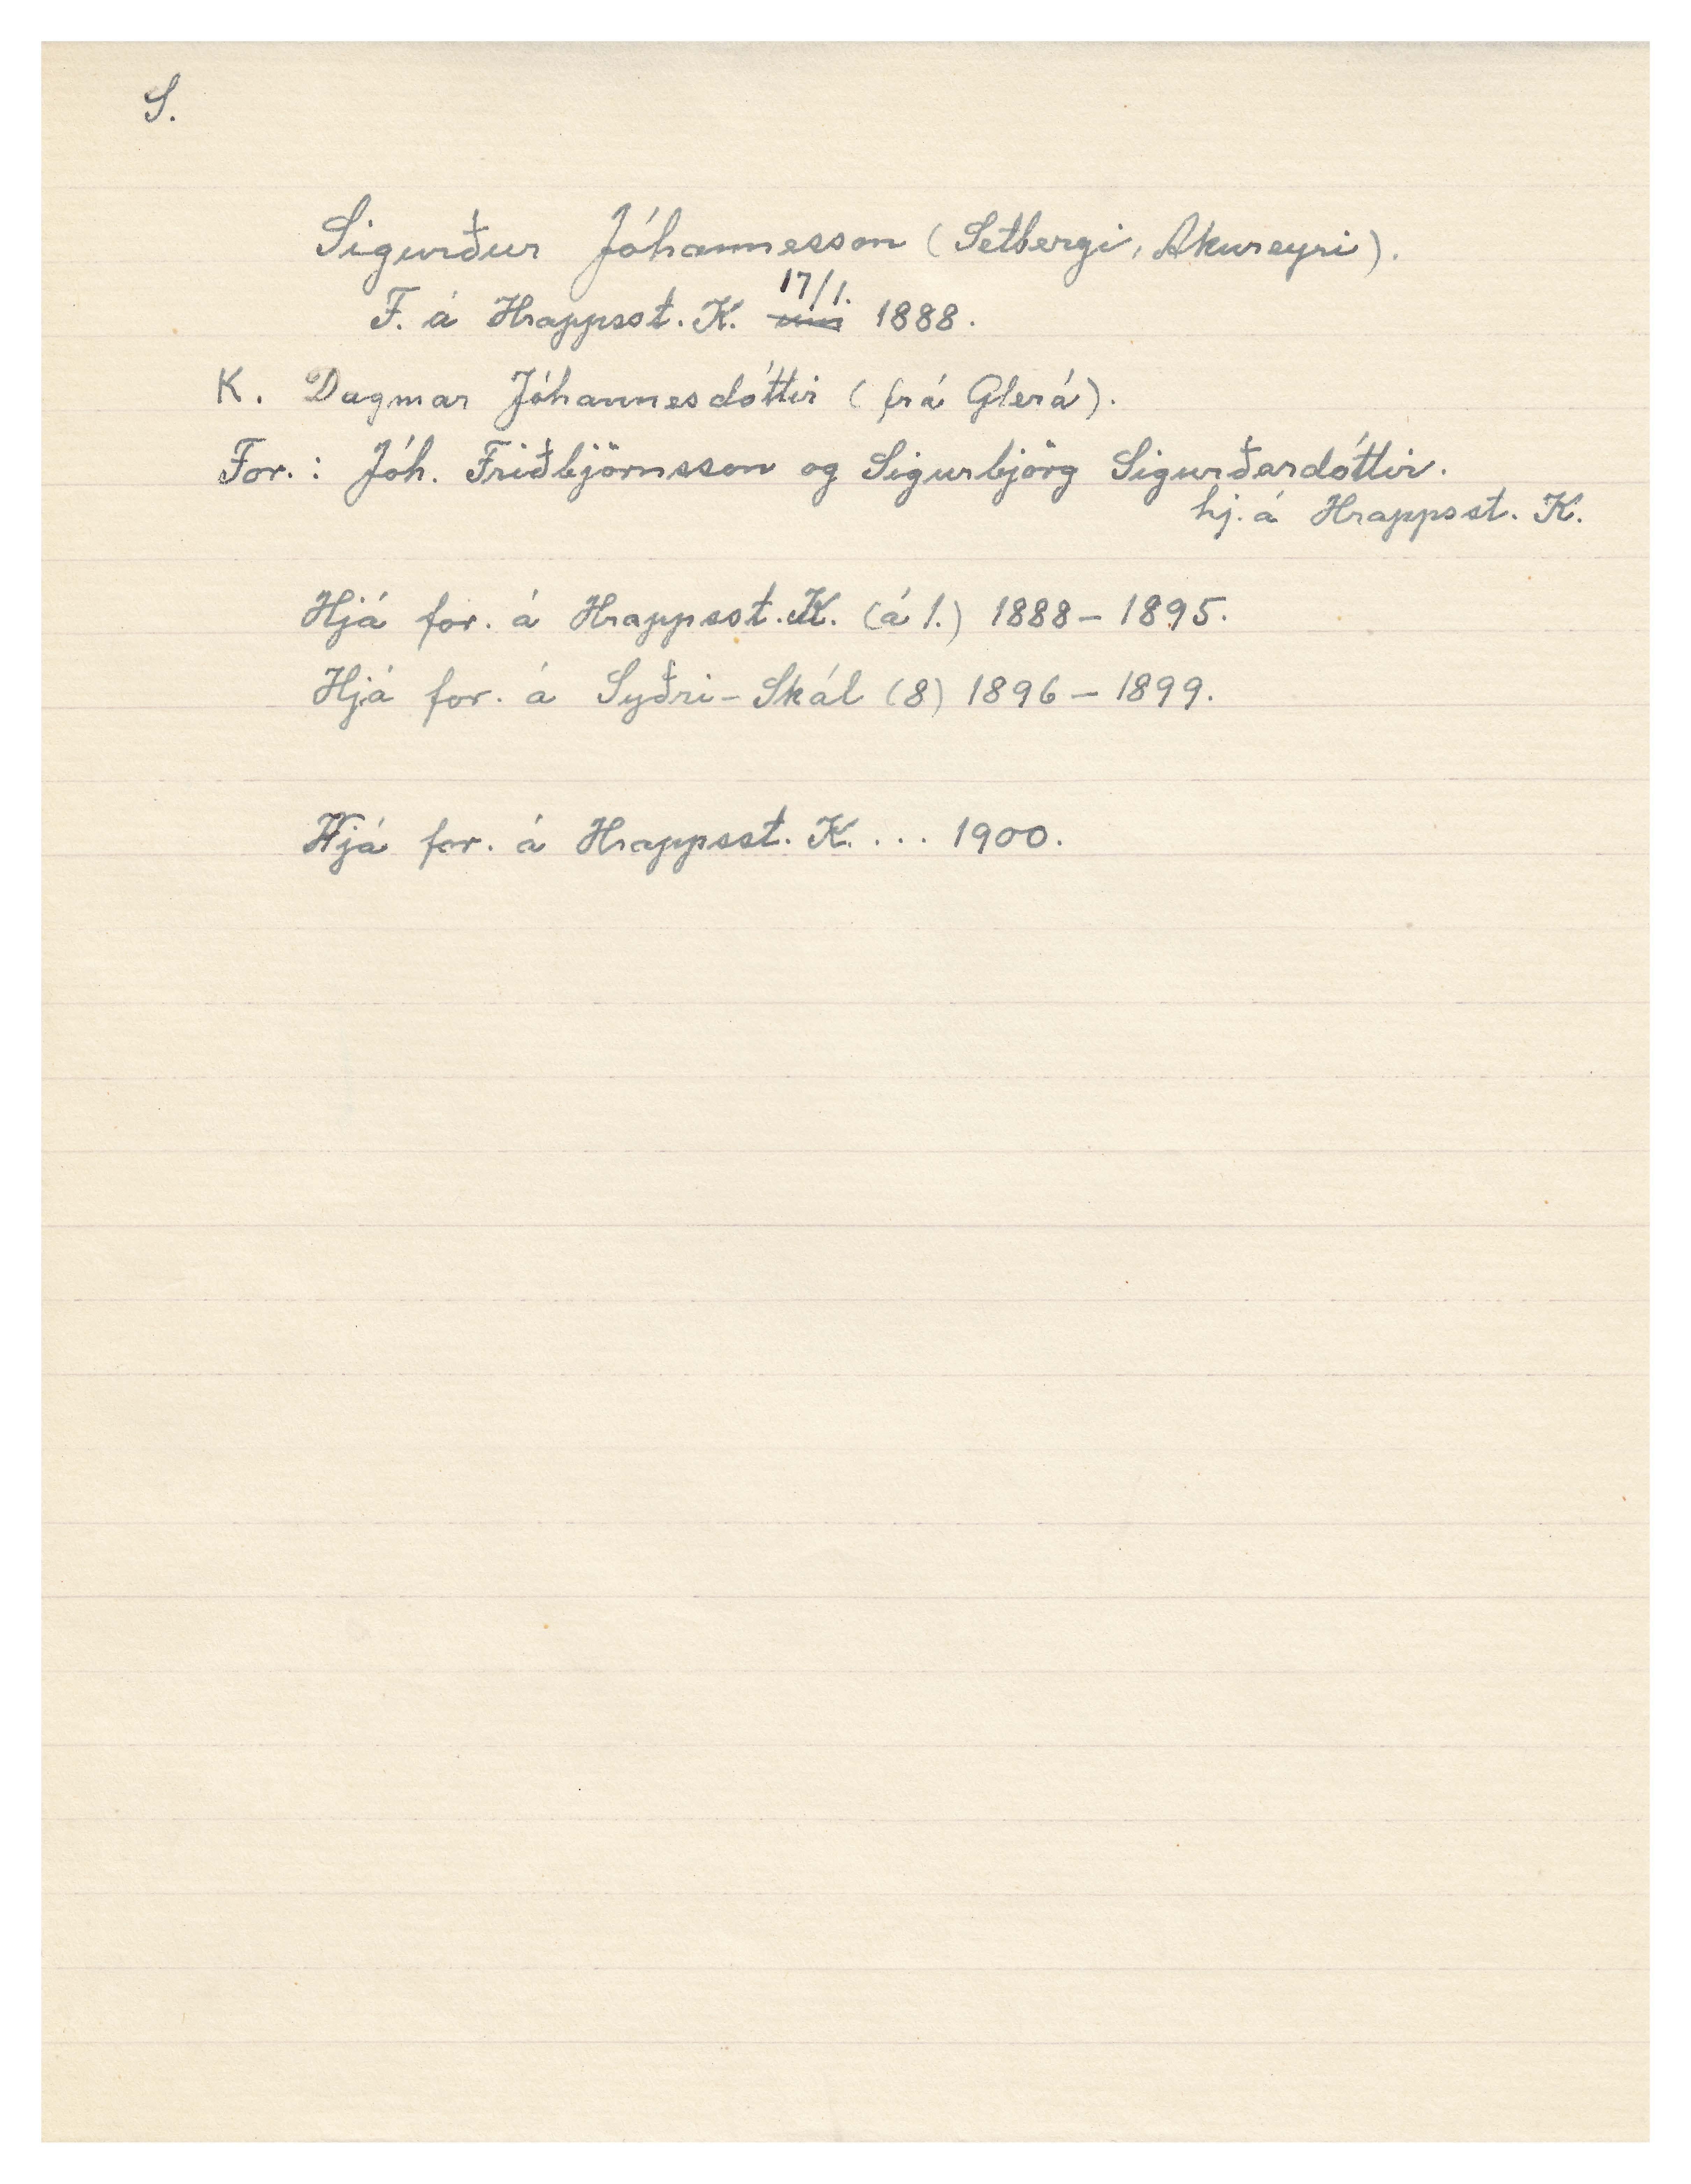 S.
Sigurður Jóhannesson (Setbergi, Akureyri).
17/1.
F. á Hrappsst. K. um 1888.
K. Dagmar Jóhannesdóttir (frá Glerá).
For.: Jóh. Friðbjörnsson og Sigurbjörg Sigurðardóttir.
hj. á Hrappsst. K.
Hjá for. á Hrappsst. K. (á 1.) 1888 - 1895.
Hjá for. á Syðri-Skál (8) 1896 - 1899.
Hjá for. á Hrappsst. K. ... 1900.